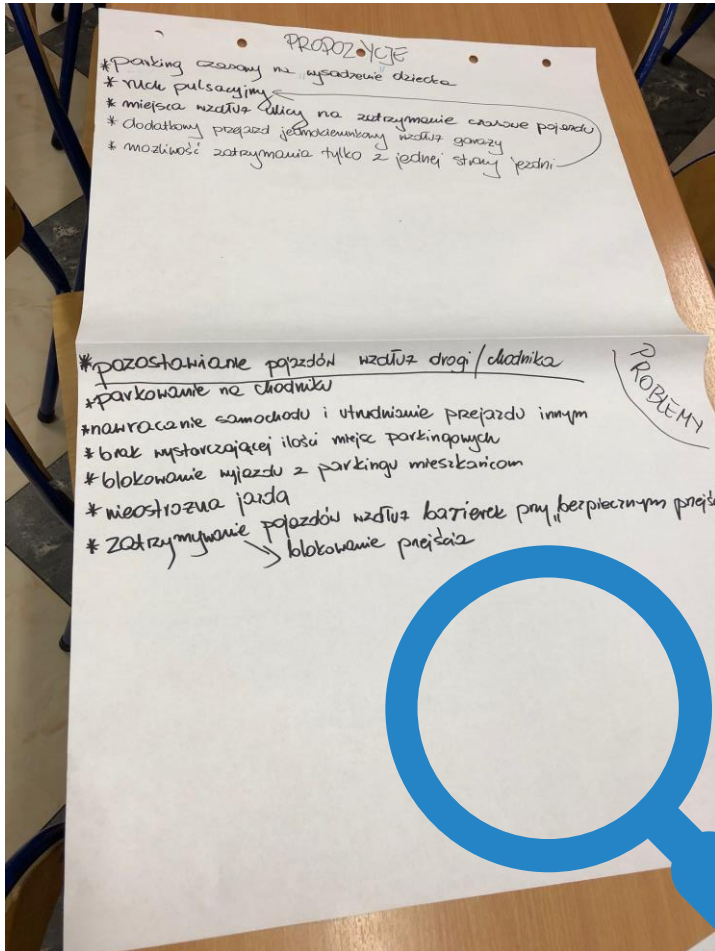 PROPOZYCJE
* parking czasowy na "wysadzenie dziecka
* ruch pulsacyjny
* miejsca wzdłuż ulicy na zatrzymanie czasowe pojazdu
* dodatkowy przejazd jednokierunkowy wzdłuż garaży
* możliwość zatrzymania tylko z jednej strony jezdni
PROBLEMY
* pozostawianie pojazdów wzdłuż drogi/chodnika
* parkowanie na chodniku
* nawracanie samochodu i utrudnianie przejazdu innym
* brak wystarczającej ilości miejsc parkingowych
* blokowanie wyjazdu z parkingu mieszkańcom
* nieostrożna jazda
* zatrzymywanie pojazdów wzdłuż barierek przy „bezpiecznym przejśc
blokowanie przejścia